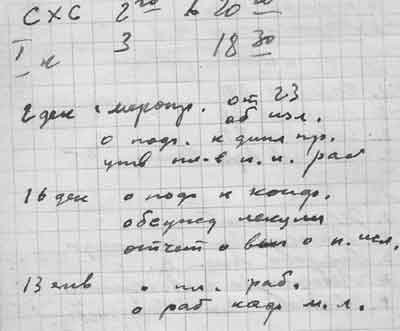 СХС 2го в 20 00
I н 3 18 30
2 дек. меропр. от 23
об изл.
о подг. к дипл пр.
утв пл-в н.и. раб
16 дек о подг к конф.
обсужд лекции
отчет о вып о н. исл.
13 янв о пл. раб.
о раб кафр м.л.